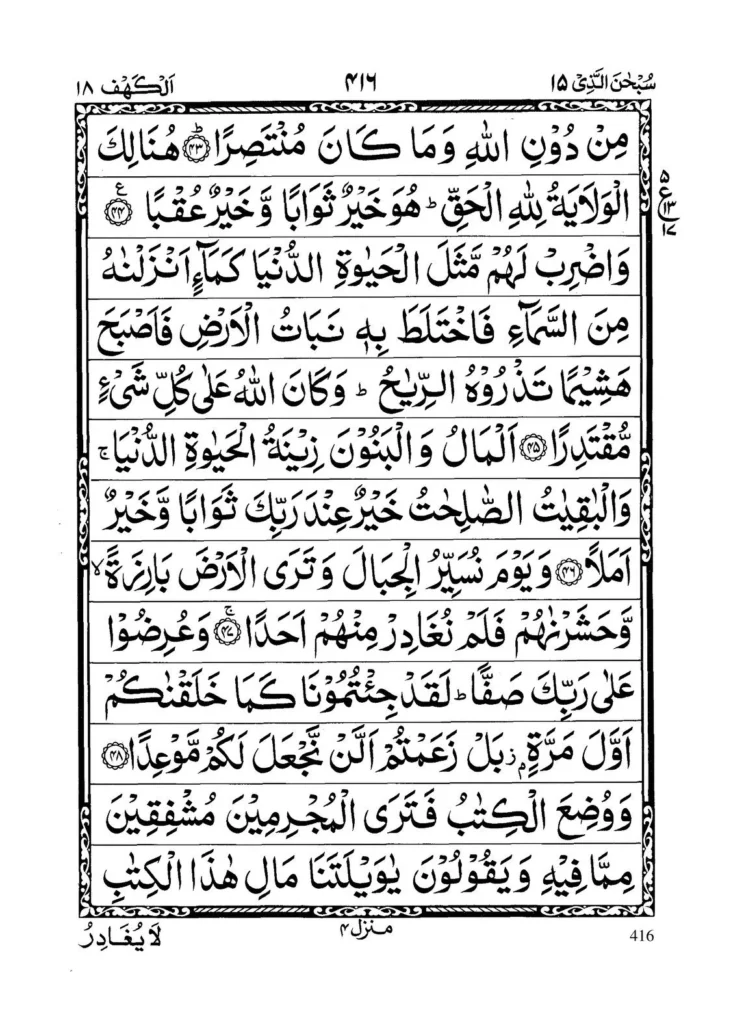 سُبْحٰنَ الَّذِیْ ۱۵ ۴۱۶ اَلْكَهْف ۱۸
مِنْ دُوْنِ اللّٰهِ وَمَا كَانَ مُنْتَصِرًا ؕ﴿۴۳﴾ هُنَالِكَ
الْوَلَايَةُ لِلّٰهِ الْحَقِّ ؕ هُوَ خَيْرٌ ثَوَابًا وَّخَيْرٌ عُقْبًا ﴿۴۴﴾ ع
۵ ع ۱۳ ۱۷
وَاضْرِبْ لَهُمْ مَّثَلَ الْحَيٰوةِ الدُّنْيَا كَمَآءٍ اَنْزَلْنٰهُ
مِنَ السَّمَآءِ فَاخْتَلَطَ بِهٖ نَبَاتُ الْاَرْضِ فَاَصْبَحَ
هَشِيْمًا تَذْرُوْهُ الرِّيٰحُ ؕ وَكَانَ اللّٰهُ عَلٰى كُلِّ شَیْءٍ
مُّقْتَدِرًا ﴿۴۵﴾ اَلْمَالُ وَالْبَنُوْنَ زِيْنَةُ الْحَيٰوةِ الدُّنْيَا ۚ
وَالْبٰقِيٰتُ الصّٰلِحٰتُ خَيْرٌ عِنْدَ رَبِّكَ ثَوَابًا وَّخَيْرٌ
اَمَلًا ﴿۴۶﴾ وَيَوْمَ نُسَيِّرُ الْجِبَالَ وَتَرَى الْاَرْضَ بَارِزَةً ۙ
وَّحَشَرْنٰهُمْ فَلَمْ نُغَادِرْ مِنْهُمْ اَحَدًا ۚ﴿۴۷﴾ وَعُرِضُوْا
عَلٰى رَبِّكَ صَفًّا ؕ لَقَدْ جِئْتُمُوْنَا كَمَا خَلَقْنٰكُمْ
اَوَّلَ مَرَّةٍۭ ؗ بَلْ زَعَمْتُمْ اَلَّنْ نَّجْعَلَ لَكُمْ مَّوْعِدًا ﴿۴۸﴾
وَوُضِعَ الْكِتٰبُ فَتَرَى الْمُجْرِمِيْنَ مُشْفِقِيْنَ
مِمَّا فِيْهِ وَيَقُوْلُوْنَ يٰوَيْلَتَنَا مَالِ هٰذَا الْكِتٰبِ
416 منزل ۴ لَا يُغَادِرُ